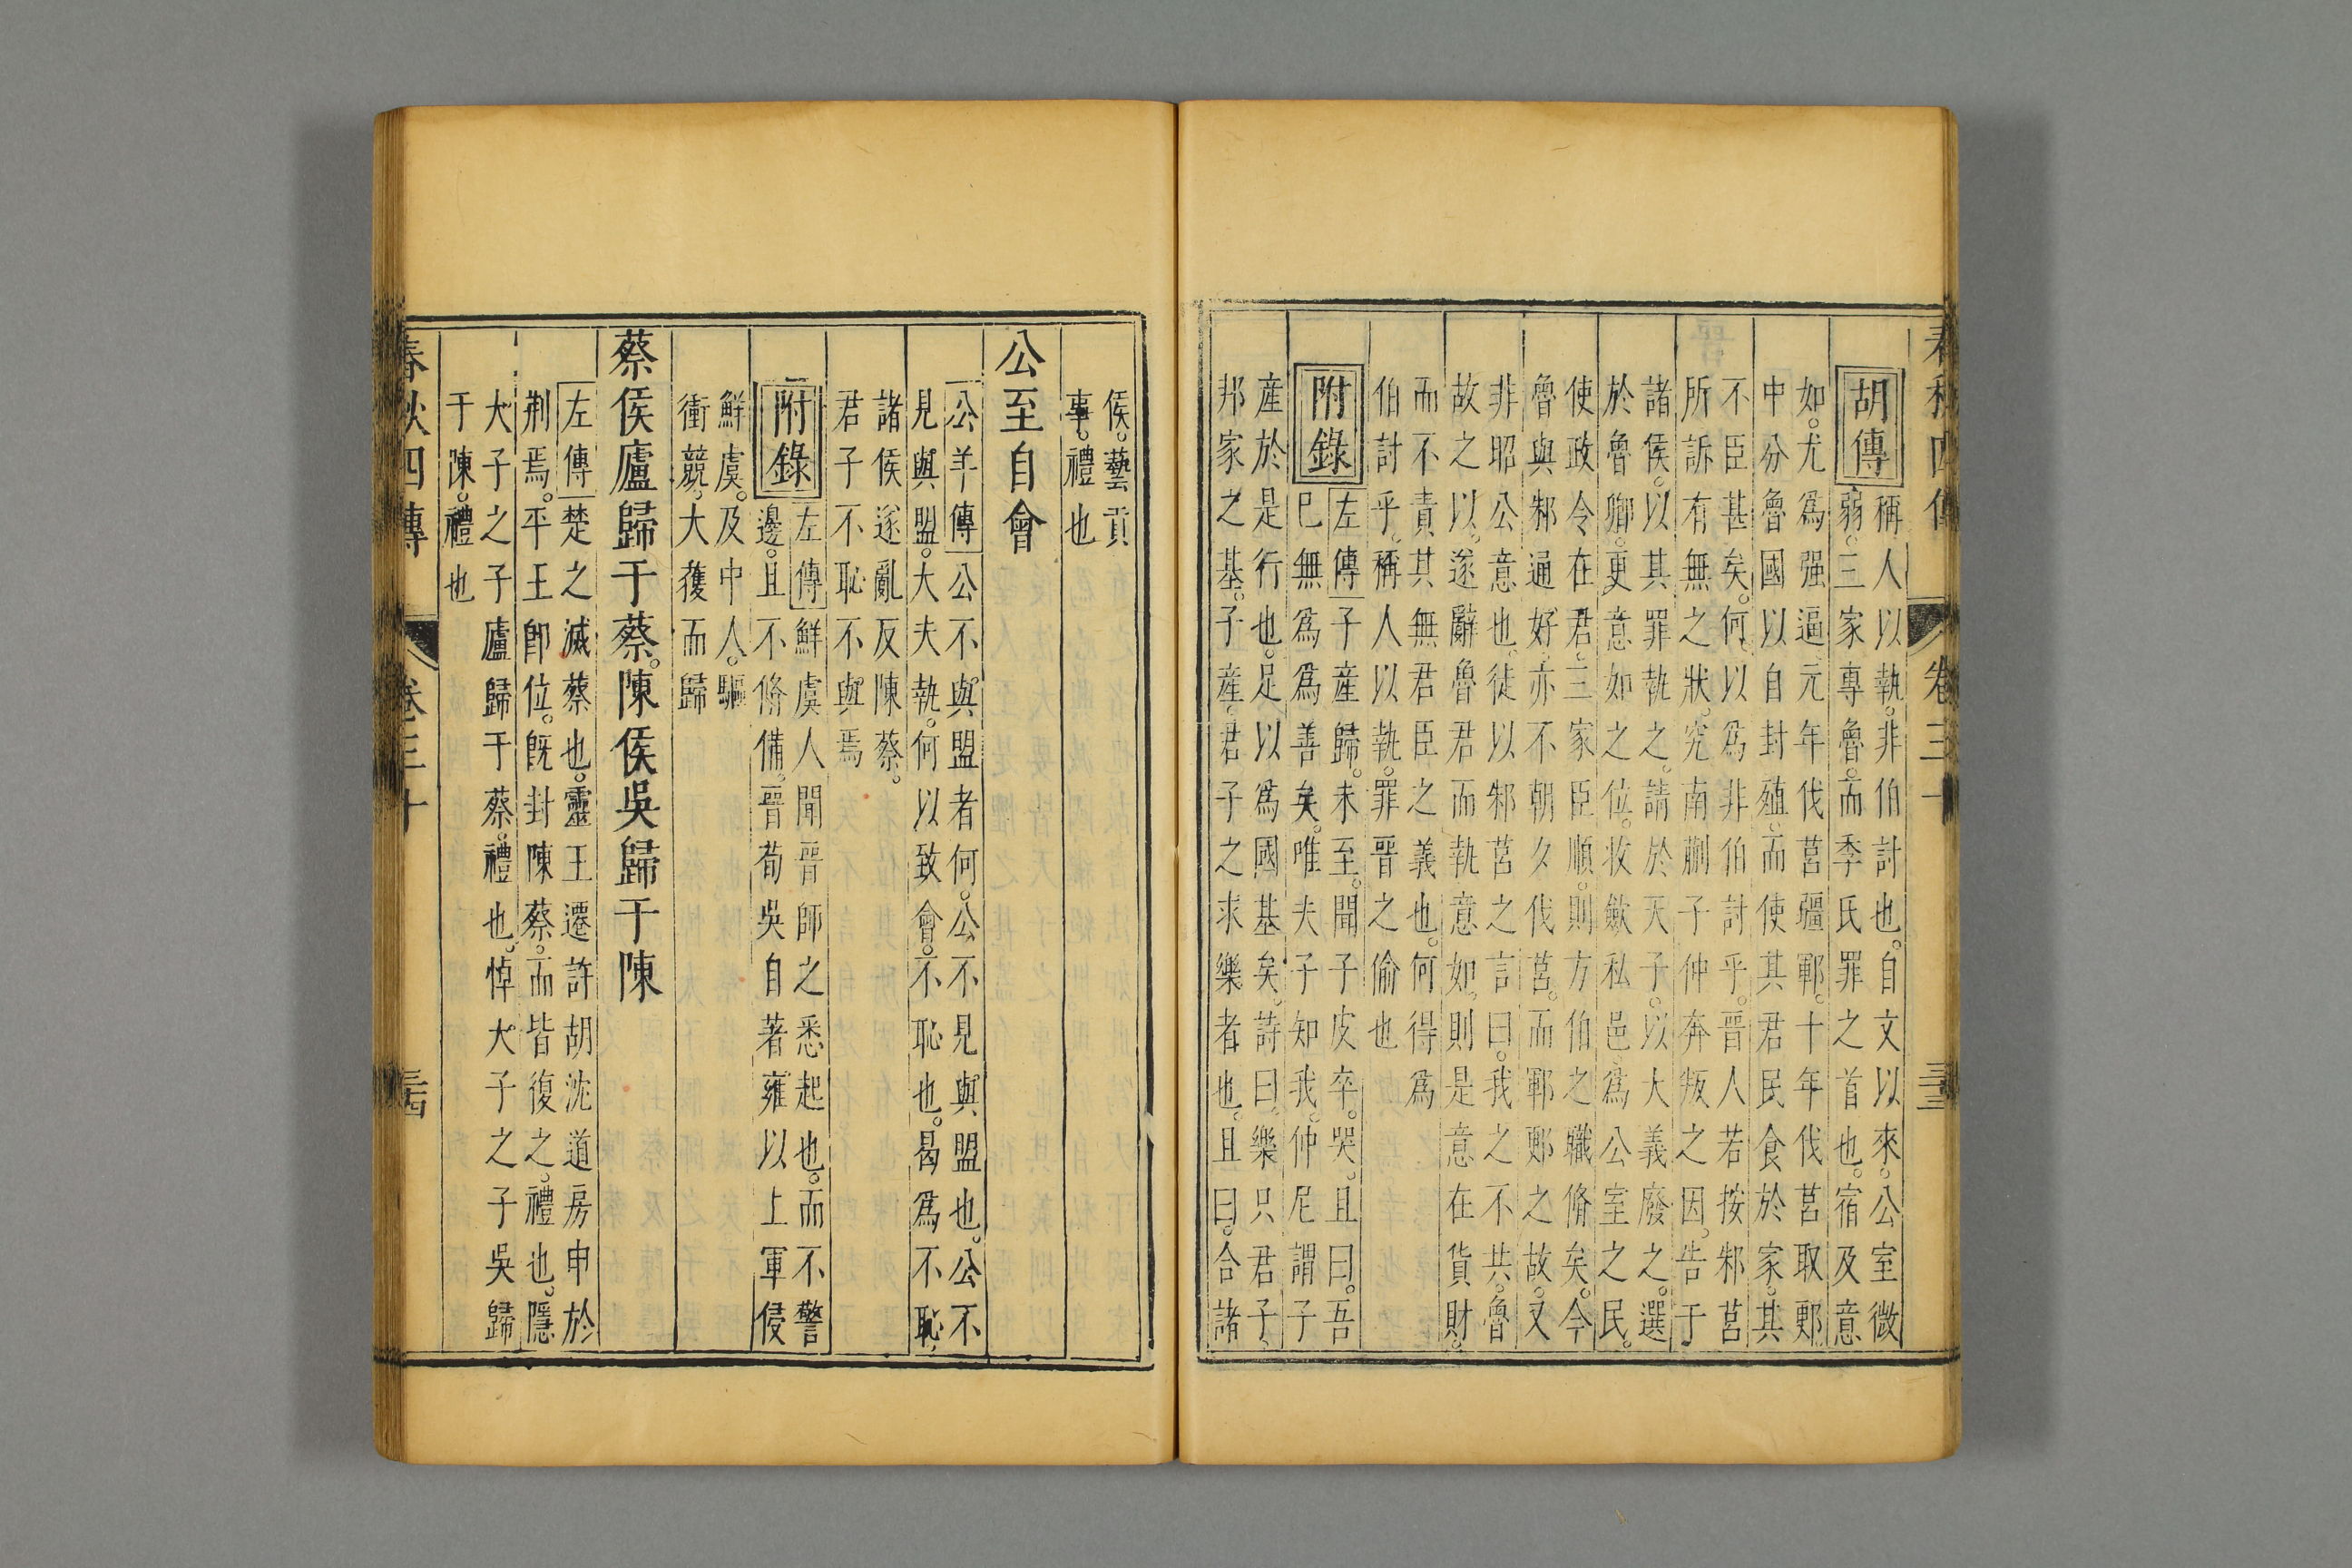 春秋四傳 卷三十 三十三
胡傳
稱人以執。非伯討也。自文以來。公室微
弱。三家專魯。而季氏罪之首也。宿及意
如。尤爲强逼。元年伐莒疆鄆。十年伐莒取鄆。
中分魯國以自封殖。而使其君民食於家。其
不臣甚矣。何以爲非伯討乎。晉人若按邾莒
所訴有無之狀。究南蒯子仲奔叛之因。告于
諸侯。以其罪執之。請於天子。以大義廢之。選
於魯卿。更意如之位。收斂私邑。爲公室之民。
使政令在君。三家臣順。則方伯之職脩矣。今
魯與邾通好。亦不朝夕伐莒。而鄆鄭之故。又
非昭公意也。徒以邾莒之言曰。我之不共。魯
故之以。遂辭魯君而執意如。則是意在貨財。
而不責其無君臣之義也。何得爲
伯討乎。稱人以執。罪晉之偷也
附錄
左傳子產歸。未至。聞子皮卒。哭。且曰。吾
已無爲爲善矣。唯夫子知我。仲尼謂子
產於是行也。足以爲國基矣。詩曰。樂只君子。
邦家之基。子產。君子之求樂者也。且曰。合諸
侯。藝貢
事。禮也
公至自會
公羊傳公不與盟者何。公不見與盟也。公不
見與盟。大夫執。何以致會。不恥也。曷爲不恥。
諸侯遂亂。反陳蔡。
君子不恥不與焉
附錄
左傳鮮虞人聞晉師之悉起也。而不警
邊。且不脩備。晉荀吳自著雍以上軍侵
鮮虞。及中人。驅
衝競。大獲而歸
蔡侯廬歸于蔡。陳侯吳歸于陳
左傳楚之滅蔡也。靈王遷許胡沈道房申於
荆焉。平王卽位。旣封陳蔡。而皆復之。禮也。隱
大子之子廬歸于蔡。禮也。悼大子之子吳歸
于陳。禮也
春秋四傳 卷三十 三十四